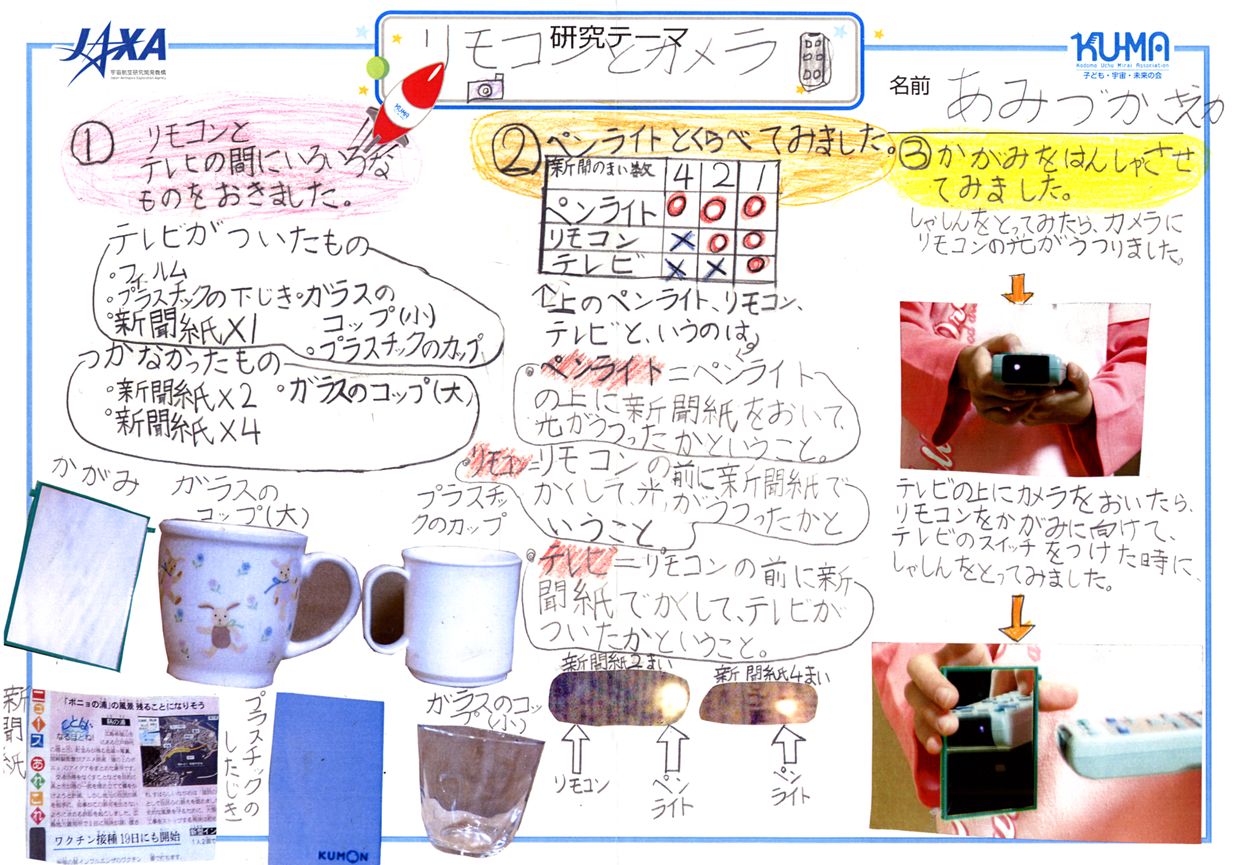 JAXA
宇宙航空研究開発機構
Japan Aerospace Exploration Agency
研究テーマ
リモコンとカメラ
KUMA
KUMA
Kodomo Uchu Mirai Association
子ども・宇宙・未来の会
名前
あみづかさえか
① リモコンと
テレビの間にいろいろな
ものをおきました。
テレビがついたもの
・フィルム
・プラスチックの下じき・ガラスの
コップ(小)
・新聞紙×1
・プラスチックのカップ
つかなかったもの
・新聞紙×2 ・ガラスのコップ(大)
・新聞紙×4
かがみ
ガラスの
コップ(大)
プラスチッ
クのカップ
新聞紙
ニュースあれこれ
「ポニョの浦」の風景 残ることになりそう
なるほどね!
鞆の浦
ワクチン接種 19日にも開始
プラスチックの
したじき
KUMON
ガラスのコッ
プ(小)
② ペンライトとくらべてみました。
新聞のまい数 4 2 1
ペンライト ○ ○ ○
リモコン × ○ ○
テレビ × × ○
↑上のペンライト、リモコン、
テレビと、いうのは、
・ペンライト=ペンライト
の上に新聞紙をおいて、
光がうつったかということ。
・リモコン=リモコンの前に新聞紙で
かくして、光がうつったかと
いうこと
・テレビ=リモコンの前に新
聞紙でかくして、テレビが
ついたかということ。
新聞紙2まい
新聞紙4まい
リモコン
ペン
ライト
ペン
ライト
③かがみをはんしゃさせ
てみました。
しゃしんをとってみたら、カメラに
リモコンの光がうつりました。
テレビの上にカメラをおいたら、
リモコンをかがみに向けて、
テレビのスイッチをつけた時に、
しゃしんをとってみました。